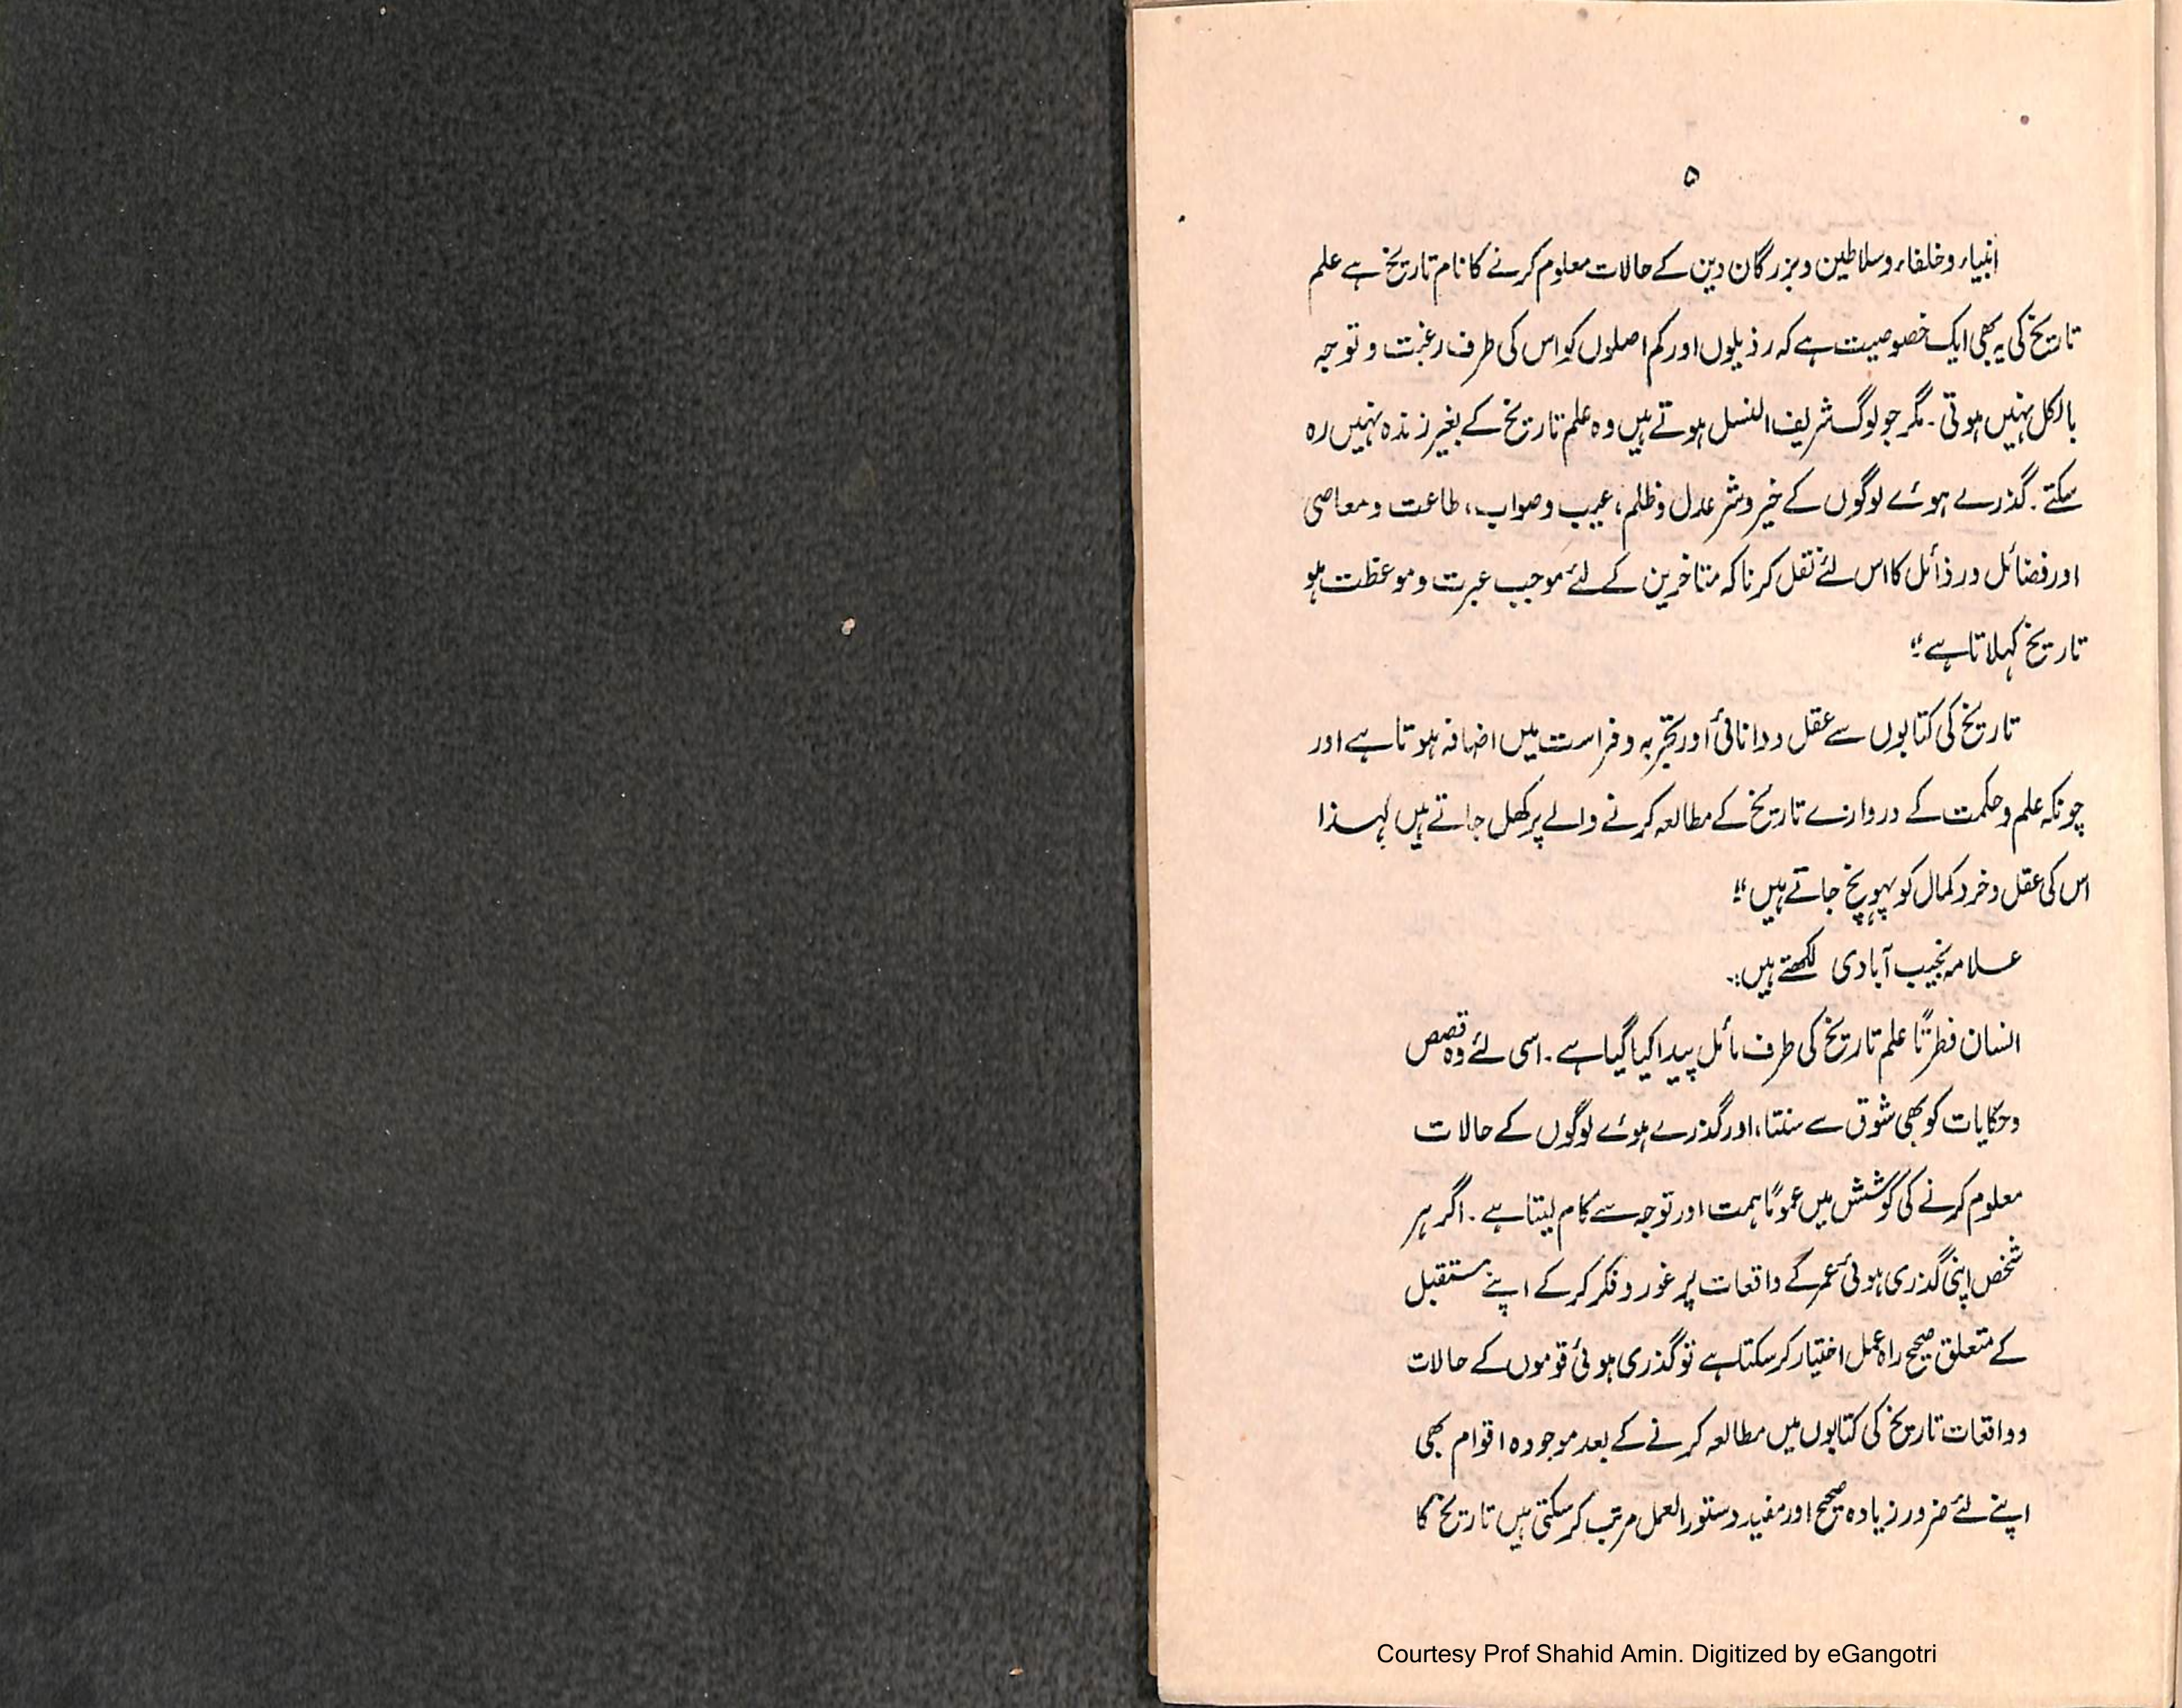 ۵
انبیاء و خلفاء و سلاطین و بزرگان دین کے حالات معلوم کرنے کا نام تاریخ ہے علم
تاریخ کی یہ بھی ایک خصوصیت ہے کہ رذیلوں اور کم اصلوں کو اس کی طرف رغبت و توجہ
بالکل نہیں ہوتی۔ مگر جو لوگ شریف النسل ہوتے ہیں وہ علم تاریخ کے بغیر زندہ نہیں رہ
سکتے۔ گذرے ہوئے لوگوں کے خیر و شر عدل و ظلم، عیب و صواب، طاعت و معاصی
اور فضائل و رذائل کا اس لئے نقل کرنا کہ متاخرین کے لئے موجب عبرت و موعظت ہو
تاریخ کہلاتا ہے"
تاریخ کی کتابوں سے عقل و دانائی اور تجربہ و فراست میں اضافہ ہوتا ہے اور
چونکہ علم و حکمت کے دروازے تاریخ کے مطالعہ کرنے والے پر کھل جاتے ہیں لہٰذا
اس کی عقل و خرد کمال کو پہونچ جاتے ہیں"
علامہ نجیب آبادی لکھتے ہیں:۔
انسان فطرتاً علم تاریخ کی طرف مائل پیدا کیا گیا ہے۔ اسی لئے وہ قصص
و حکایات کو بھی شوق سے سنتا، اور گذرے ہوئے لوگوں کے حالات
معلوم کرنے کی کوشش میں عموماً ہمت اور توجہ سے کام لیتا ہے۔ اگر ہر
شخص اپنی گذری ہوئی عمر کے واقعات پر غور و فکر کر کے اپنے مستقبل
کے متعلق صحیح راہ عمل اختیار کر سکتا ہے تو گذری ہوئی قوموں کے حالات
و واقعات تاریخ کی کتابوں میں مطالعہ کرنے کے بعد موجودہ اقوام بھی
اپنے لئے ضرور زیادہ صحیح اور مفید دستور العمل مرتب کر سکتی ہیں تاریخ کا
Courtesy Prof Shahid Amin. Digitized by eGangotri